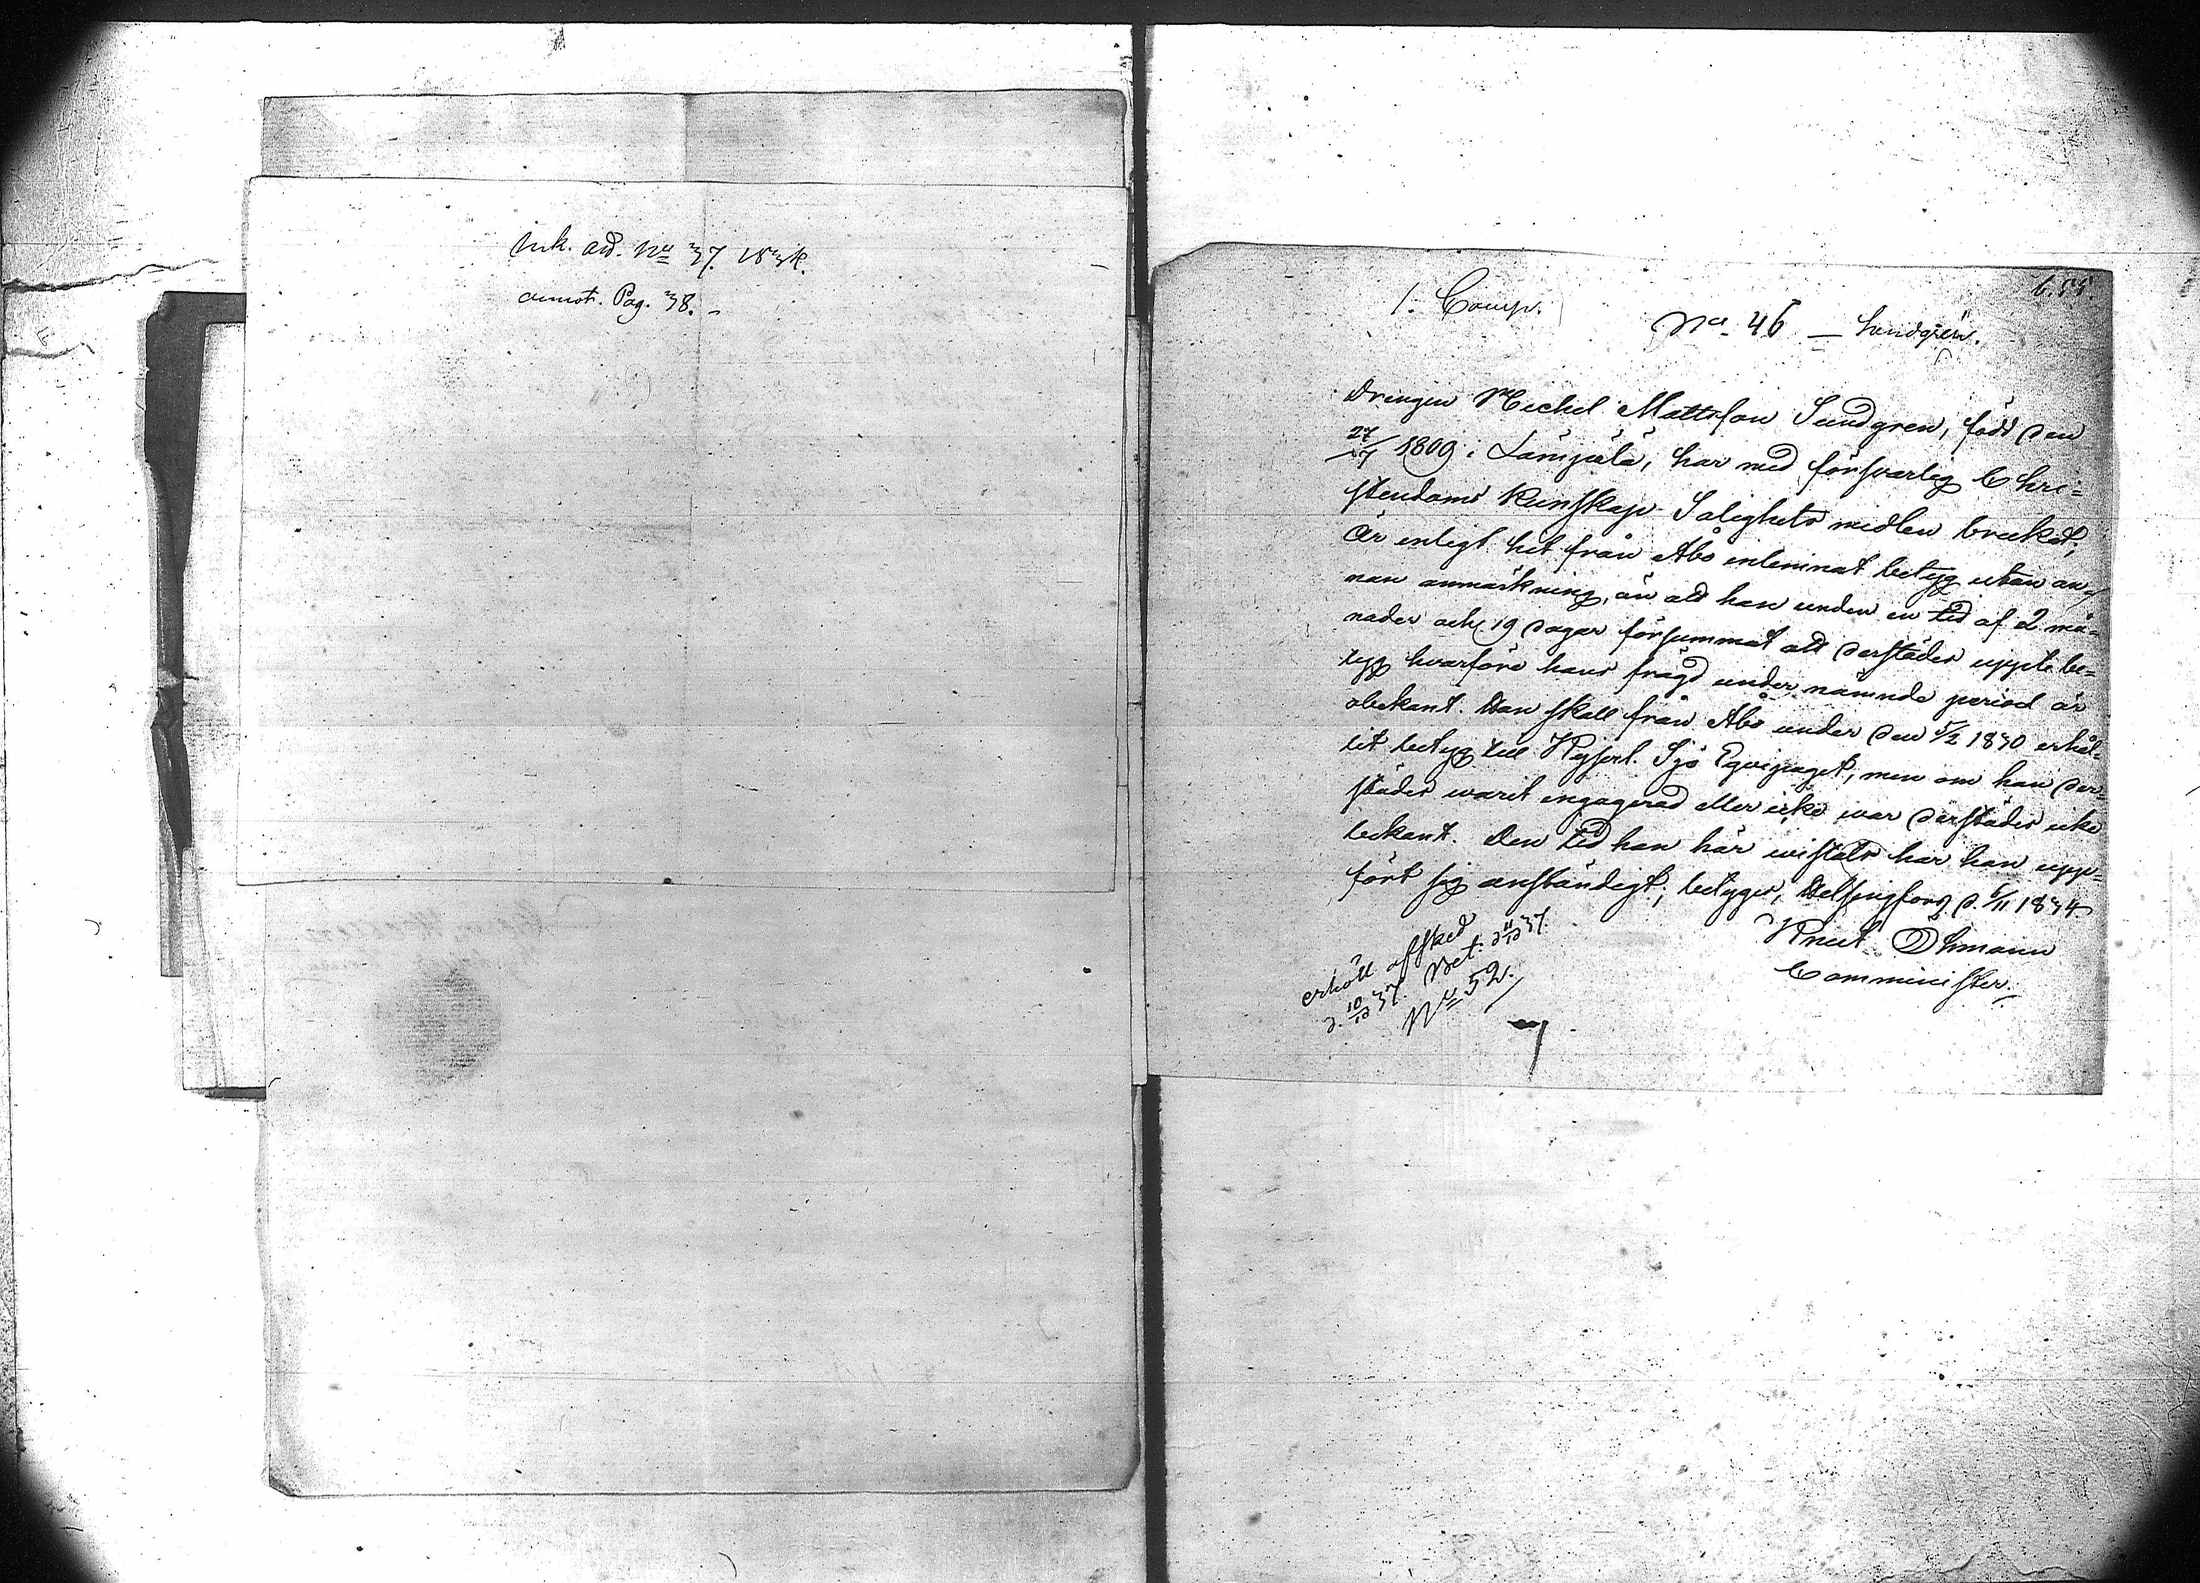 Ink. att. No 37. 1834.
annot. Pag. 38.
1. Comp.
b. 55.
No 46 — Sundgren.
Drengen Michel Mattsson Sundgren, född den
27/7 1809 i Lämjälä, har med försvarlig Chri=
stendoms kunskap Salighets midlen brukat;
är enligt hit från Åbo inlemnat betyg utan an=
nan anmärkning, än att han under en tid af 2 må=
nader och 19 dagar försummat att derstädes uppte be=
tyg hvarföre hans frägd under nämnde period är
obekant. Han skall från Åbo under den 5/2 1830 erhål=
lit betyg till Kejserl. Sjö Equipaget, men om han der=
städes warit engagerad eller icke war derstädes icke
bekant. Den tid han här wistats har han upp=
fört sig anständigt; betygar, Helsingfors d. 6/11 1834.
Knut Öhmann
Comminister.
erhöll afsked
d. 10/12 37. Bet. d 11/12 37.
No 52.